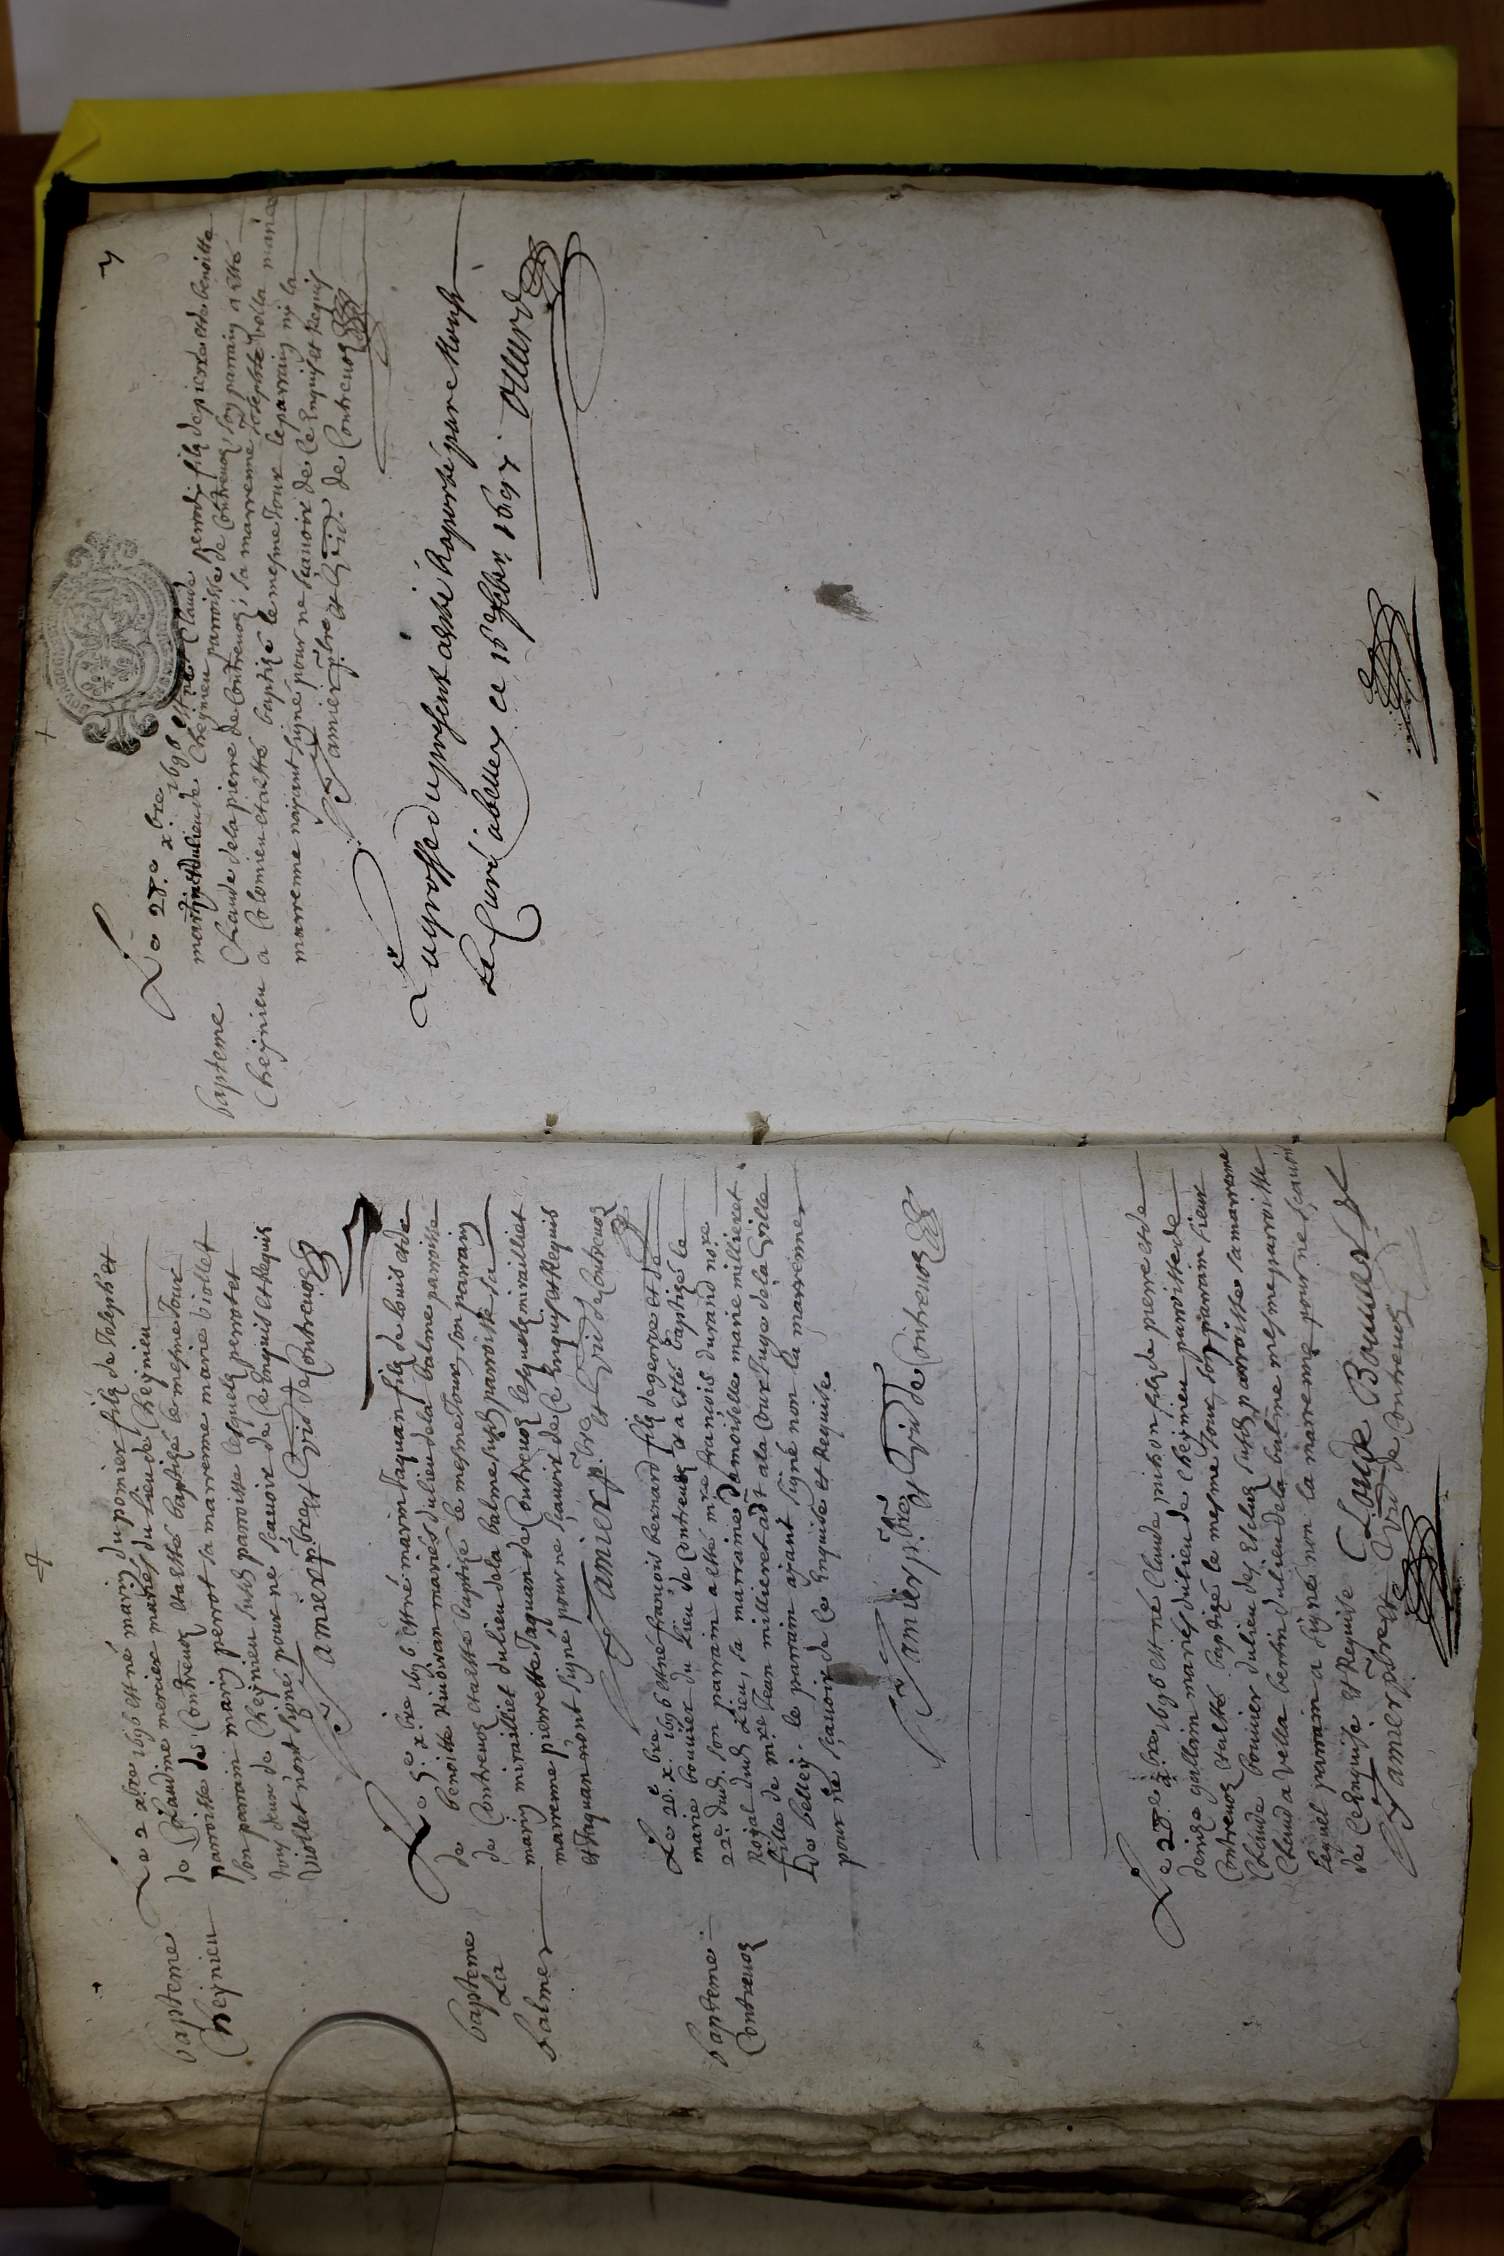 bapteme
Cheynieu
Le 2 xbre 1696 est né marin du pomier filz de Joseph et
de Claudine mercier mariés du lieu de Cheynieu
parroisse de Contrevoz et a esté baptizé le mesme Jour
son parrain marin perrot sa marrenne marie viollet
tous deux de Cheynieu susd parroisse lesquelz perrot et
viollet n'ont signé pour ne scavoir de ce Enquis et Requis
Jamier pbre et Vic de Contrevoz
bapteme
La
balme
Le 9e xbre 1696 est né marin Jaquan filz de louis et de
benoitte mariés du lieu de la balme parroisse
de Contrevoz et a esté baptizé le mesme Jour son parrain
marin miraillet du lieu de la balme susd parroisse sa
marrenne pierrette Jaquan de Contrevoz lesquelz miraillet
et Jaquan n'ont signé pour ne scavoir de ce Enquis et Requis
Jamier pbre et Vic de Contrevoz
bapteme
Contrevoz
Le 20e xbre 1696 est né francois bernard filz de george et de
marie bouvier du Lieu de Contrevoz et a esté baptizé le
22e dud. son parrain a esté mre francois durand nore
Royal dud Lieu, sa marraine Damoiselle marie millieret
fille de mre Jean millieret adt a la Cour Juge de la Ville
de belley. le parrain ajant signé non la marrenne
pour ne scavoir de ce Enquise et Requise
Jamier pbre et Vic de Contrevoz
Le 28e xbre 1696 est né Claude pithon filz de pierre et de
denize gallin mariés du lieu de Cheynieu parroisse de
Contrevoz et a esté baptizé le mesme Jour son parrain sieur
Claude bouvier du lieu des susd parroisse sa marrenne
Clauda vella bertin du lieu de la balme mesme parroisse
Lequel parrain a signé non la marrenne pour ne scavoir
de ce Enquise et Requise Claude Bouvier
Jamier pbre et Vic de Contrevoz
7
bapteme
Cheynieu
Le 28e xbre 1696 est né Claude perrod filz de pierre et de benoitte
martin du lieu de Cheynieu parroisse de Contrevoz, son parrain a esté
Claude de la pierre de Contrevoz; sa marrenne Josephte vella mariée
a Colomieu et a esté baptizé le mesme Jour le parrain ni la
marrenne n'ayant signé pour ne scavoir de ce Enquis et Requis
Jamier pbre et Vic de Contrevoz
La grosse du present a esté Raporté par Monsr
Le Curé a belley ce 16e febr. 1697.